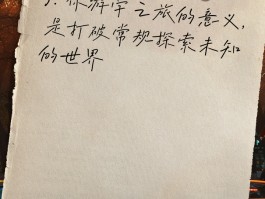 游学之旅的意义,
是打破常规探索未知
的世界